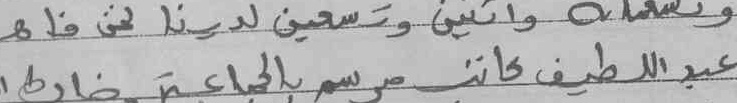 وتسعمائة واثنين وتسعين لدينا نحن
عبد اللطيف كاتب مرسم بالجماعة